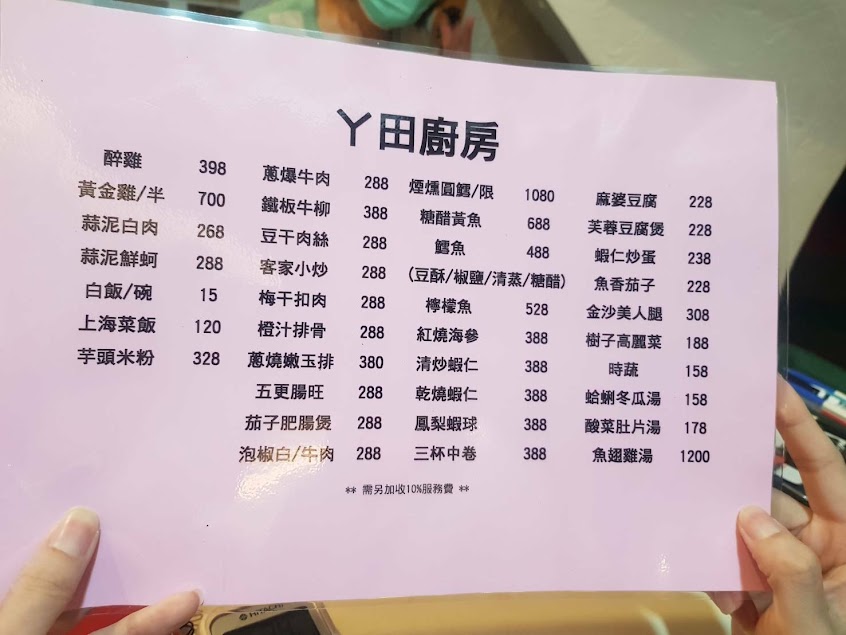 ㄚ田廚房
醉雞 398
黃金雞/半 700
蒜泥白肉 268
蒜泥鮮蚵 288
白飯/碗 15
上海菜飯 120
芋頭米粉 328
蔥爆牛肉 288
鐵板牛柳 388
豆干肉絲 288
客家小炒 288
梅干扣肉 288
橙汁排骨 288
蔥燒嫩玉排 380
五更腸旺 288
茄子肥腸煲 288
泡椒白/牛肉 288
煙燻圓鱈/限 1080
糖醋黃魚 688
鱈魚 488
(豆酥/椒鹽/清蒸/糖醋)
檸檬魚 528
紅燒海參 388
清炒蝦仁 388
乾燒蝦仁 388
鳳梨蝦球 388
三杯中卷 388
麻婆豆腐 228
芙蓉豆腐煲 228
蝦仁炒蛋 238
魚香茄子 228
金沙美人腿 308
樹子高麗菜 188
時蔬 158
蛤蜊冬瓜湯 158
酸菜肚片湯 178
魚翅雞湯 1200
** 需另加收10%服務費 **
HITACHI